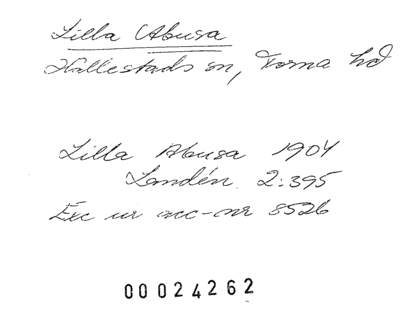 Lilla Abusa
Hällestads sn, Torna hd
Lilla Abusa 1904
Landén. 2:395
Exc ur acc-nr 8526
00024262